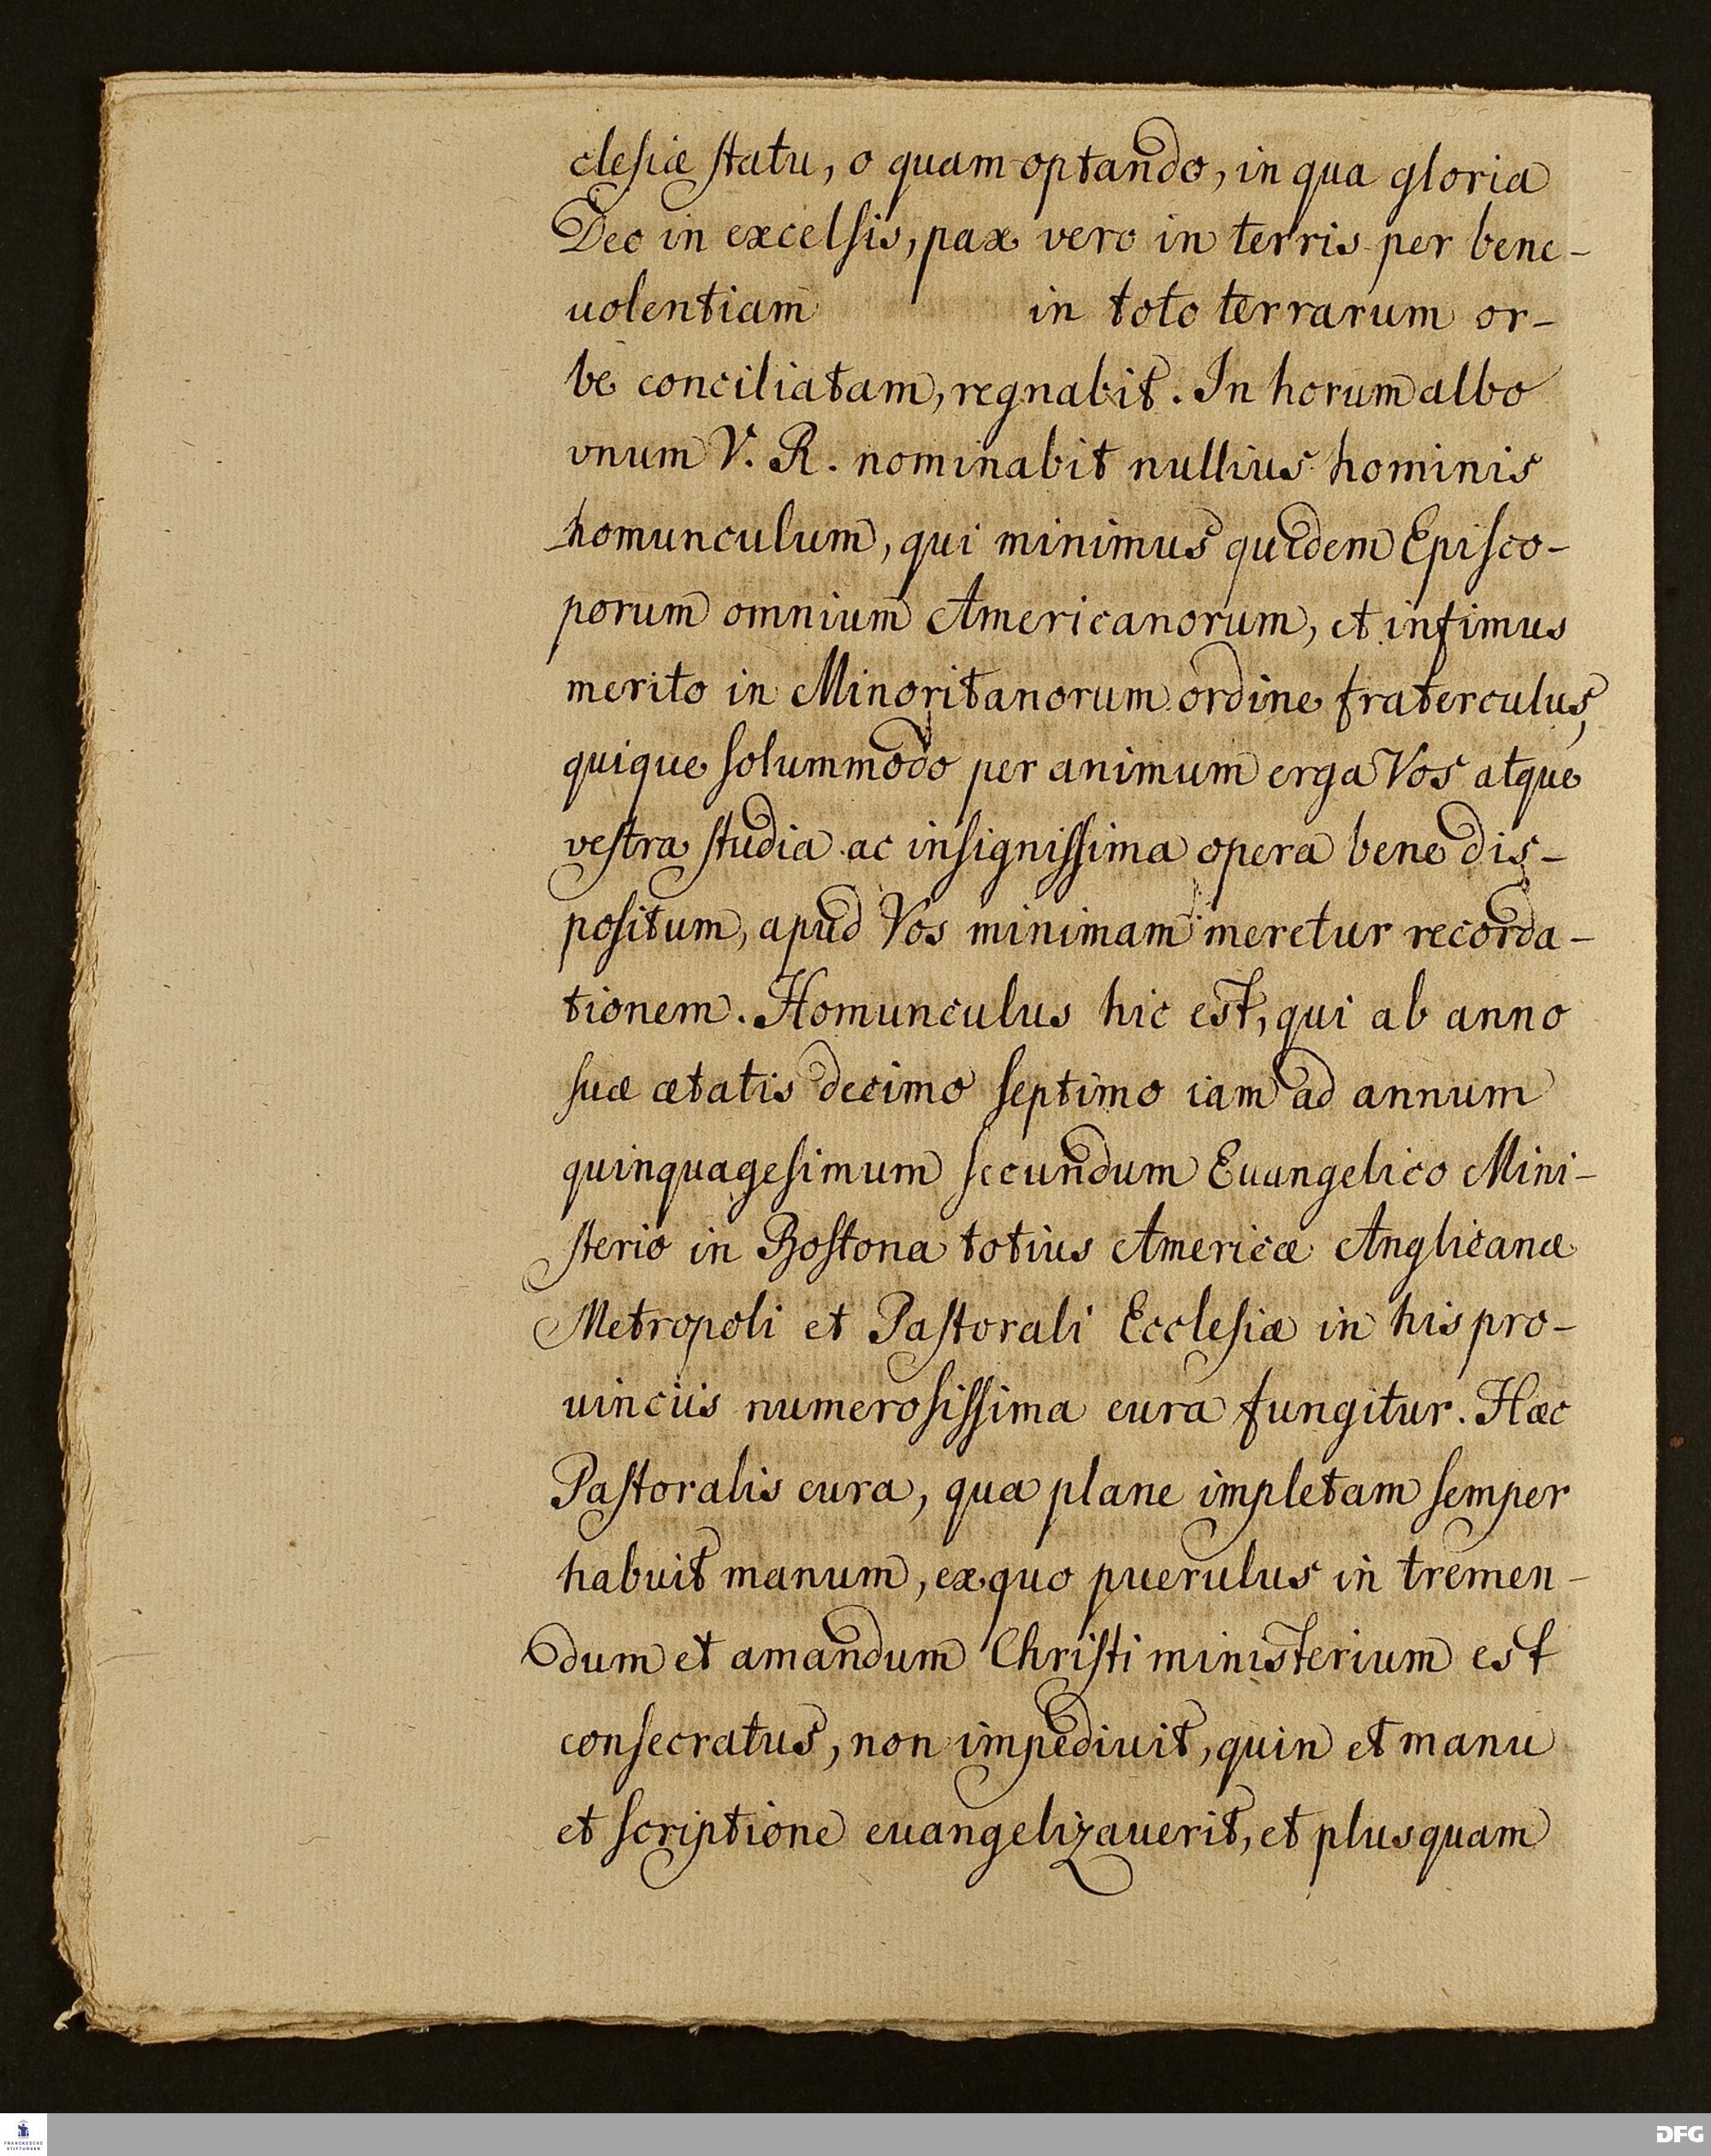 clesiæ statu, o quam optando, in qua gloria
Deo in excelsis, pax vero in terris per bene-
uolentiam in toto terrarum or-
be conciliatam, regnabit. In horum albo
vnum V. R. nominabit nullius hominis
homunculum, qui minimus quidem Episco-
porum omnium Americanorum, et infimus
merito in Minoritanorum ordine fraterculus,
quique solummodo per animum erga Vos atque
vestra studia ac insignissima opera bene dis-
positum, apud Vos minimam meretur recorda-
tionem. Homunculus hic est, qui ab anno
suæ ætatis decimo septimo iam ad annum
quinquagesimum secundum Euangelico Mini-
sterio in Bostona totius Americæ Anglicanæ
Metropoli et Pastorali Ecclesiæ in his pro-
uinciis numerosissima cura fungitur. Hæc
Pastoralis cura, qua plane impletam semper
habuit manum, ex quo puerulus in tremen-
dum et amandum Christi ministerium est
consecratus, non impediuit, quin et manu
et scriptione euangelizauerit, et plusquam
FRANCKESCHE
STIFTUNGEN
DFG